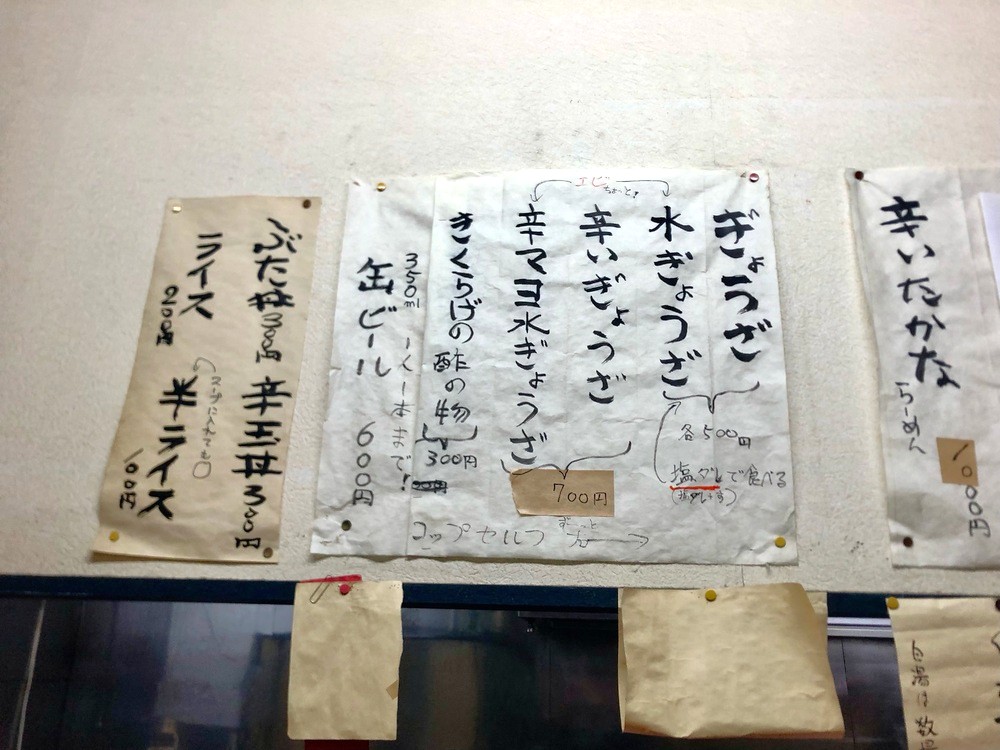 辛いたかな
らーめん
1000円
ぎょうざ
水ぎょうざ
各500円
塩ダレで食べる
エビ
ちょっと!
辛いぎょうざ
辛マヨ水ぎょうざ
700円
きくらげの酢の物
300円
350ml
缶ビール
600円
一人一本まで!
コップセルフ
ずーっと
ぶた丼300円
辛玉丼300円
ライス
200円
スープに入れても
半ライス
100円